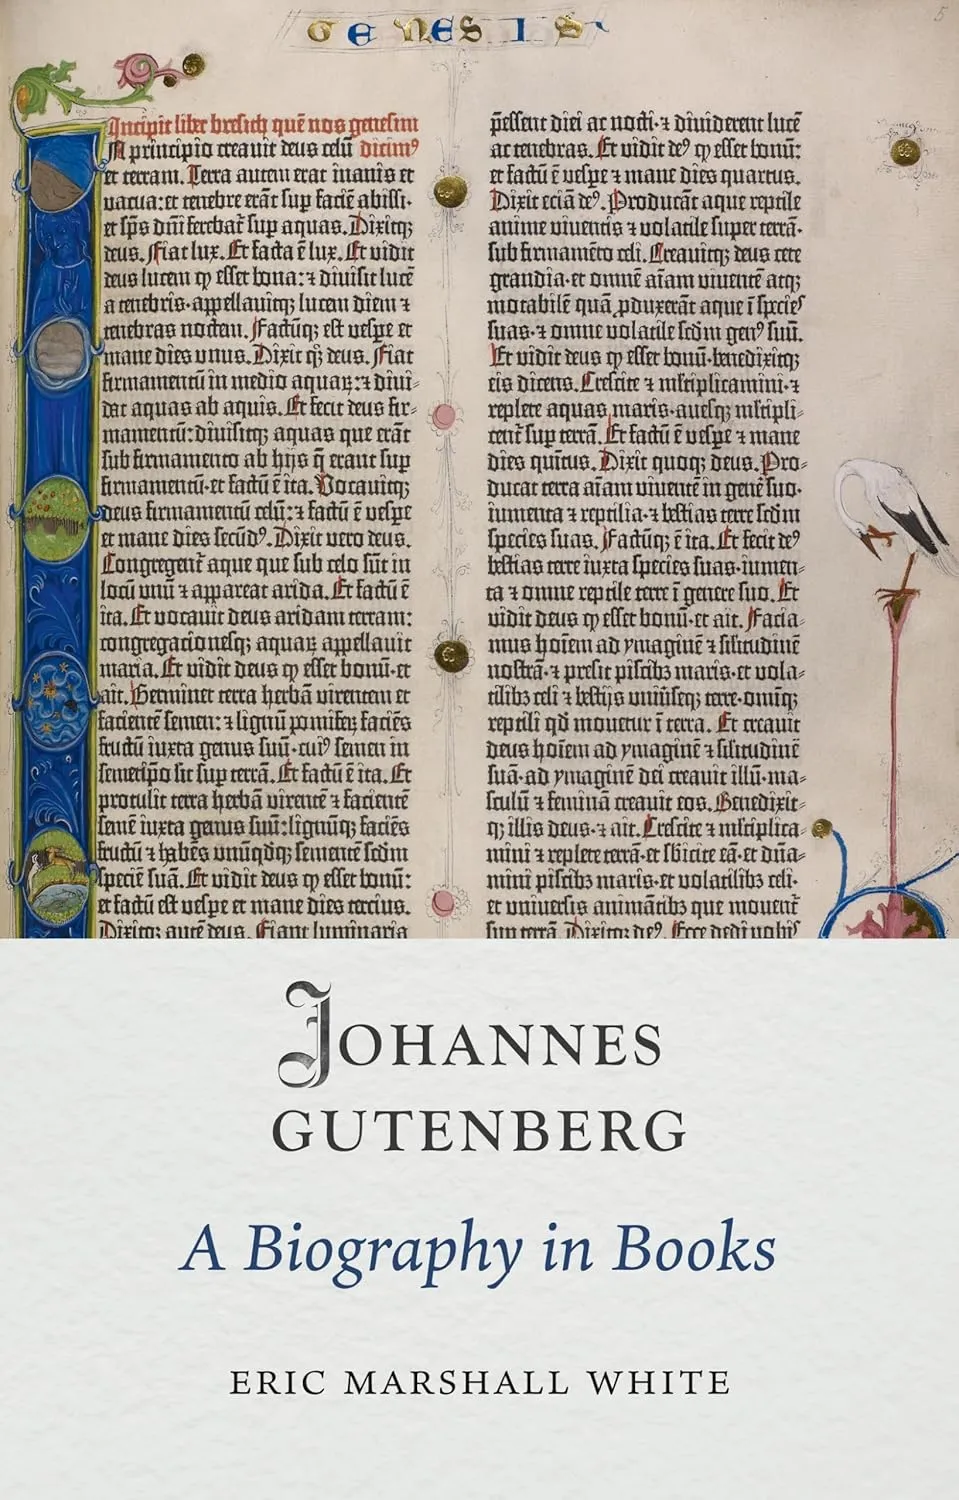 GENESIS
5
Incipit liber bresith quē nos genesim
In principio creauit deus celū dicim⁹
et terram. Terra autem erat inanis et
vacua: et tenebre erāt sup faciē abissi·
et sp̄s dn̄i ferebat̄ sup aquas. Dixitqꝫ
deus. Fiat lux. Et facta ē lux. Et vidit
deus lucem ꝙ esset bona: ⁊ diuisit lucē
a tenebris·appellauitqꝫ lucem diem ⁊
tenebras noctem. Factūqꝫ est vespe et
mane dies vnus. Dixit qꝫ deus. Fiat
firmamentū in medio aquaꝝ: ⁊ diui-
dat aquas ab aquis. Et fecit deus fir-
mamentū: diuisitqꝫ aquas que erāt
sub firmamento ab hijs q̄ erant sup
firmamentū·et factū ē ita. Vocauitqꝫ
deus firmamentū celū: ⁊ factū ē vespe
et mane dies secūd⁹. Dixit vero deus.
Congregent̄ aque que sub celo sūt in
locū vnū ⁊ appareat arida. Et factū ē
ita. Et vocauit deus aridam terram:
congregacionesqꝫ aquaꝝ appellauit
maria. Et vidit deus ꝙ esset bonū·et
ait. Germinet terra herbā virentem et
facientē semen: ⁊ lignū pomifeꝝ faciēs
fructū iuxta genus suū·cui⁹ semen in
semetip̄o sit sup terrā. Et factū ē ita. Et
protulit terra herbā virentē ⁊ facientē
semē iuxta genus suū: lignūqꝫ faciēs
fructū ⁊ habēs vnūqdqꝫ sementē scdm
speciē suā. Et vidit deus ꝙ esset bonū:
et factū est vespe et mane dies tercius.
Dixitqꝫ autē deus. Fiant luminaria
p̄essent diei ac nocti·⁊ diuiderent lucē
ac tenebras. Et vidit de⁹ ꝙ esset bonū:
et factū ē vespe ⁊ mane dies quartus.
Dixit eciā de⁹. Producāt aque reptile
anime viuentis ⁊ volatile super terrā·
sub firmamēto celi. Creauitqꝫ deus cete
grandia·et omnē aīam viuentē atqꝫ
motabilē quā ꝓduxerāt aque ī species
suas·⁊ omne volatile scdm gen⁹ suū.
Et vidit deus ꝙ esset bonū·benedixitqꝫ
eis dicens. Crescite ⁊ mltiplicamini·⁊
replete aquas maris·auesqꝫ mltipli-
cent̄ sup terrā. Et factū ē vespe ⁊ mane
dies quītus. Dixit quoqꝫ deus. Pro-
ducat terra aīam viuentē in genē suo·
iumenta ⁊ reptilia·⁊ bestias terre scdm
species suas. Factūqꝫ ē ita. Et fecit de⁹
bestias terre iuxta species suas·iumen-
ta ⁊ omne reptile terre ī genere suo. Et
vidit deus ꝙ esset bonū·et ait. Facia-
mus hoīem ad ymaginē ⁊ silitudinē
nostrā·⁊ presit piscibꝫ maris·et vola-
tilibꝫ celi ⁊ bestijs vniūseqꝫ terre·omīqꝫ
reptili qd mouetur ī terra. Et creauit
deus hoīem ad ymaginē ⁊ silitudinē
suā·ad ymaginē dei creauit illū·ma-
sculū ⁊ feminā creauit eos. Benedixit-
qꝫ illis deus·⁊ ait. Crescite ⁊ mltiplica-
mini ⁊ replete terrā·et sbicite eā·et dn̄a-
mini piscibꝫ maris·et volatilibꝫ celi·
et vniuersis animātibꝫ que mouent̄
sup terrā. Dixitqꝫ de⁹. Ecce dedi vobis
JOHANNES
GUTENBERG
A Biography in Books
ERIC MARSHALL WHITE